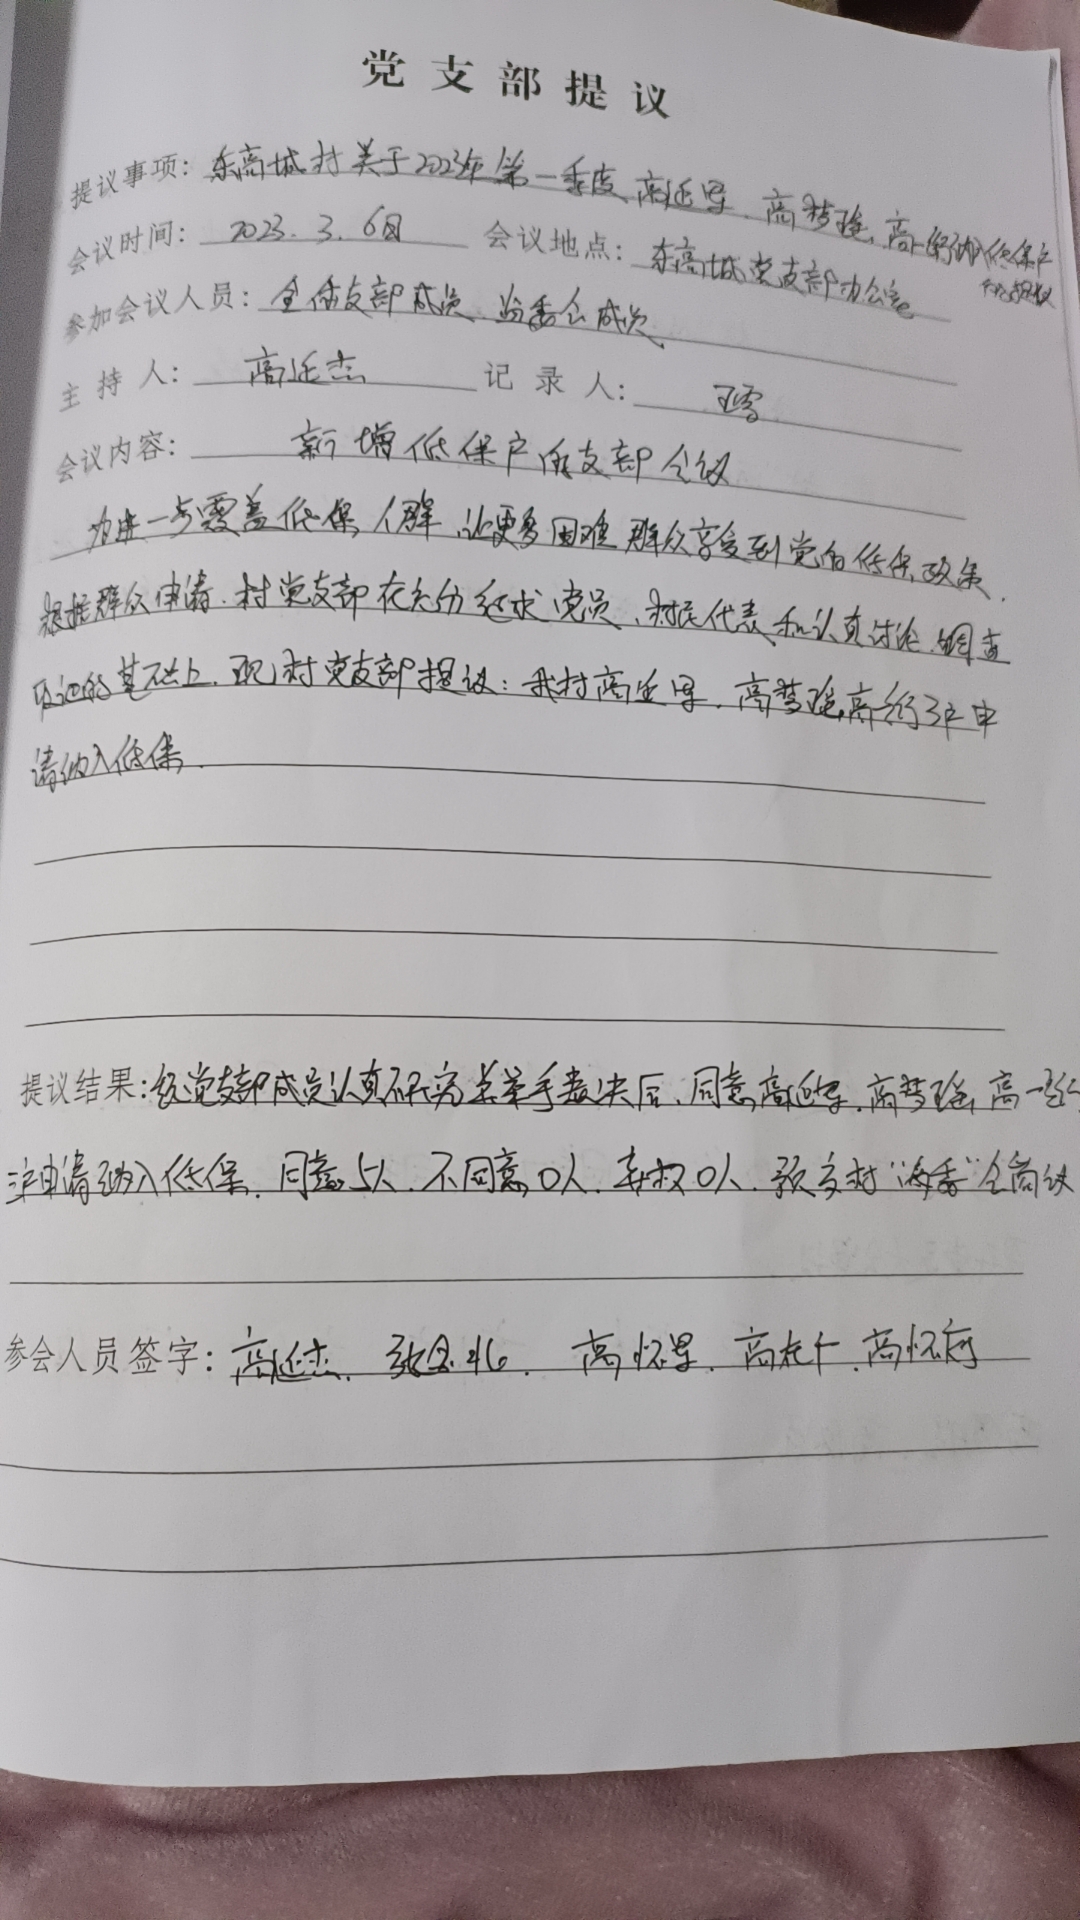 党支部提议
提议事项：东高城村关于2023年第一季度高延军、高梦瑶、高一纳入低保户
的提议
会议时间：2023.3.6日 会议地点：东高城党支部办公室
参加会议人员：全体支部成员、监委会成员
主持人：高延杰 记录人：王雪
会议内容：新增低保户的支部会议
为进一步覆盖低保人群，让更多困难群众享受到党的低保政策，
根据群众申请，村党支部在充分征求党员、村民代表和认真讨论、调查
取证的基础上，现村党支部提议：我村高延军、高梦瑶、高一3户申
请纳入低保。
提议结果：经党支部成员认真研究并举手表决后，同意高延军、高梦瑶、高一
三户申请纳入低保，同意5人，不同意0人，弃权0人，预交村“两委”会商议
参会人员签字：高延杰、张、高怀军、高、高怀府